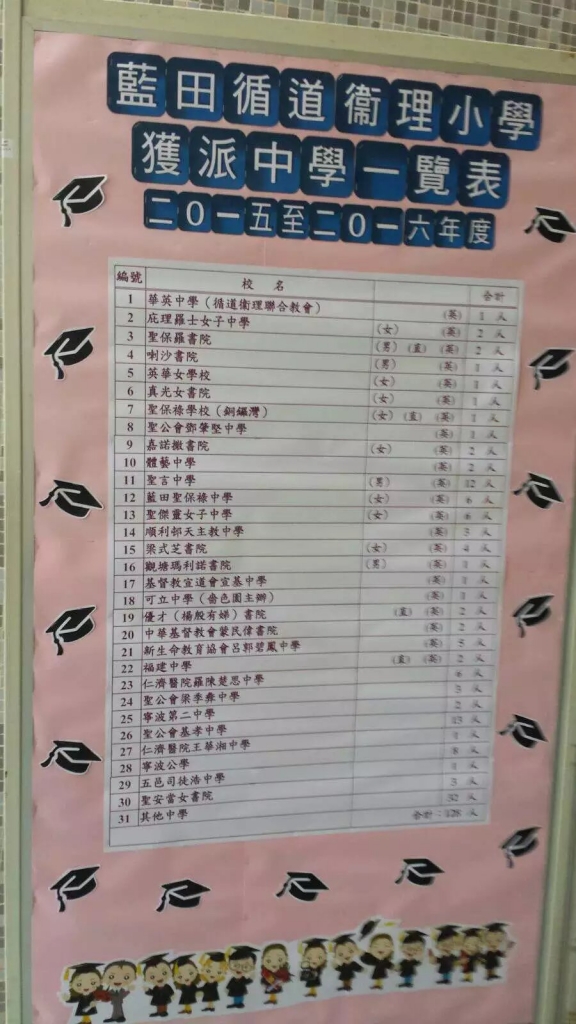 藍田循道衞理小學
獲派中學一覽表
二0一五至二0一六年度
編號 校名 合計
1 華英中學（循道衞理聯合教會） （英） 1 人
2 庇理羅士女子中學 （女） （英） 2 人
3 聖保羅書院 （男）（直）（英） 2 人
4 喇沙書院 （男） （英） 1 人
5 英華女學校 （女） （英） 1 人
6 真光女書院 （女） （英） 1 人
7 聖保祿學校（銅鑼灣） （女）（直）（英） 1 人
8 聖公會鄧肇堅中學 （英） 1 人
9 嘉諾撒書院 （女） （英） 2 人
10 體藝中學 （英） 2 人
11 聖言中學 （男） （英） 12 人
12 藍田聖保祿中學 （女） （英） 6 人
13 聖傑靈女子中學 （女） （英） 人
14 順利邨天主教中學 （英） 3 人
15 梁式芝書院 （女） （英） 4 人
16 觀塘瑪利諾書院 （男） （英） 1 人
17 基督教宣道會宣基中學 （英） 1 人
18 可立中學（嗇色園主辦） （英） 1 人
19 優才（楊殷有娣）書院 （直）（英） 2 人
20 中華基督教會蒙民偉書院 （英） 2 人
21 新生命教育協會呂郭碧鳳中學 （英） 5 人
22 福建中學 （直）（英） 2 人
23 仁濟醫院羅陳楚思中學 6 人
24 聖公會梁季彝中學 3 人
25 寧波第二中學 2 人
26 聖公會基孝中學 13 人
27 仁濟醫院王華湘中學 1 人
28 寧波公學 8 人
29 五邑司徒浩中學 1 人
30 聖安當女書院 3 人
31 其他中學 32 人
合計：128 人